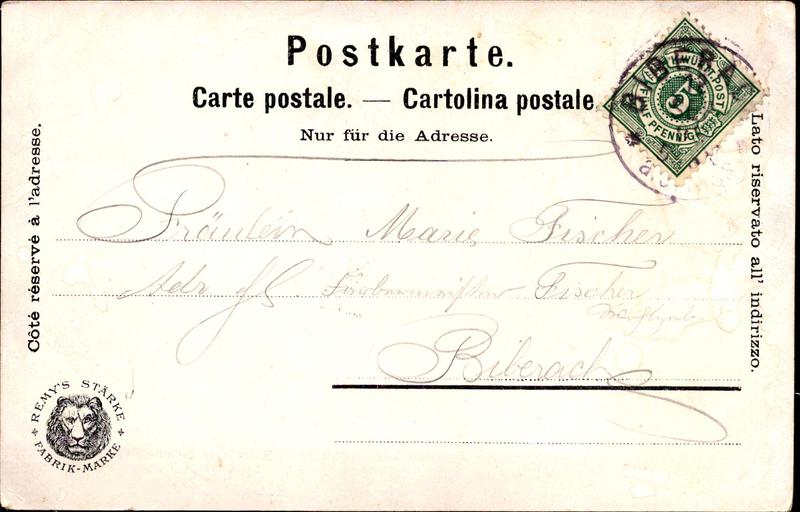 Postkarte.
Carte postale. — Cartolina postale
Nur für die Adresse.
Côté réservé à l'adresse.
Lato riservato all' indirizzo.
K. WÜRTT. POST
5
FÜNF PFENNIG
BIBERA
Fräulein Marie Fischer
Adr
Färbermeister Fischer
Biberach
REMY'S STÄRKE
FABRIK-MARKE